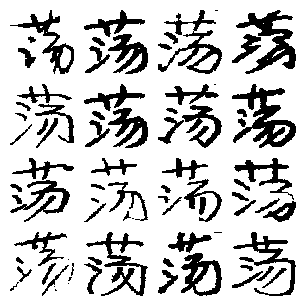 荡荡荡荡
荡荡荡荡
荡荡荡荡
荡荡荡荡